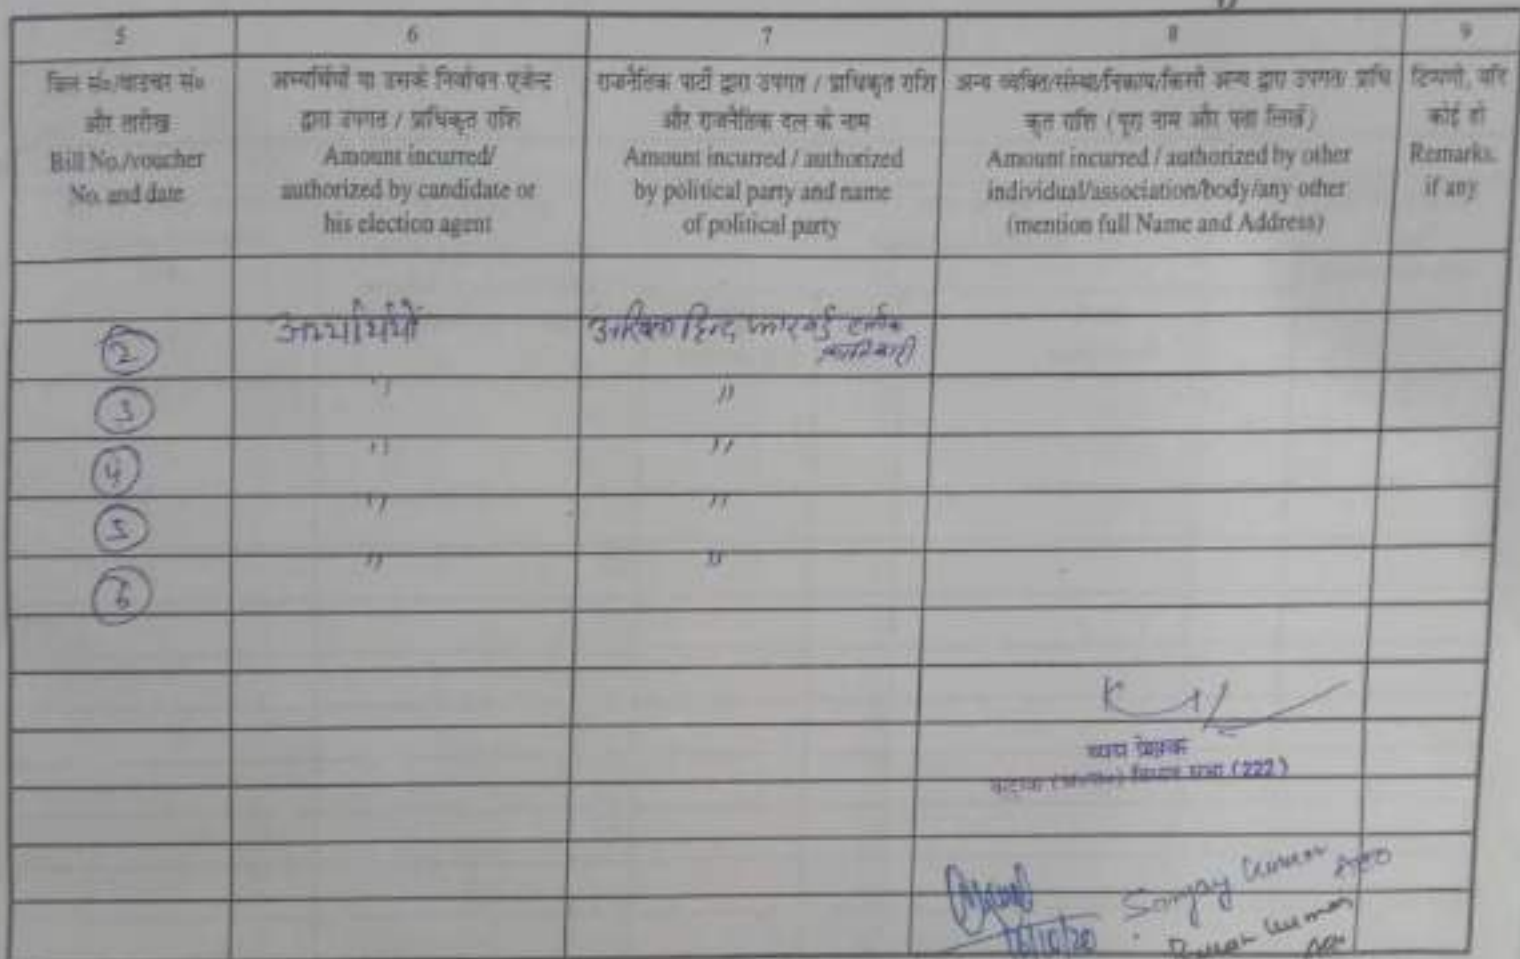 5 6 7 8 9
बिल सं०/वाउचर सं० और तारीख
Bill No./voucher No. and date
अभ्यर्थियों या उसके निर्वाचन एजेन्ट द्वारा उपगत / प्राधिकृत राशि
Amount incurred/ authorized by candidate or his election agent
राजनैतिक पार्टी द्वारा उपगत / प्राधिकृत राशि और राजनैतिक दल के नाम
Amount incurred / authorized by political party and name of political party
अन्य व्यक्ति/संस्था/निकाय/किसी अन्य द्वारा उपगत/ प्राधिकृत राशि (पूरा नाम और पता लिखें)
Amount incurred / authorized by other individual/association/body/any other (mention full Name and Address)
टिप्पणी, यदि कोई हो
Remarks, if any
2 अभ्यर्थियों
3 " "
4 " "
5 " "
6 " "
व्यय प्रेक्षक
विधान सभा (222)
Sanjay Kumar
16/10/20
Kumar